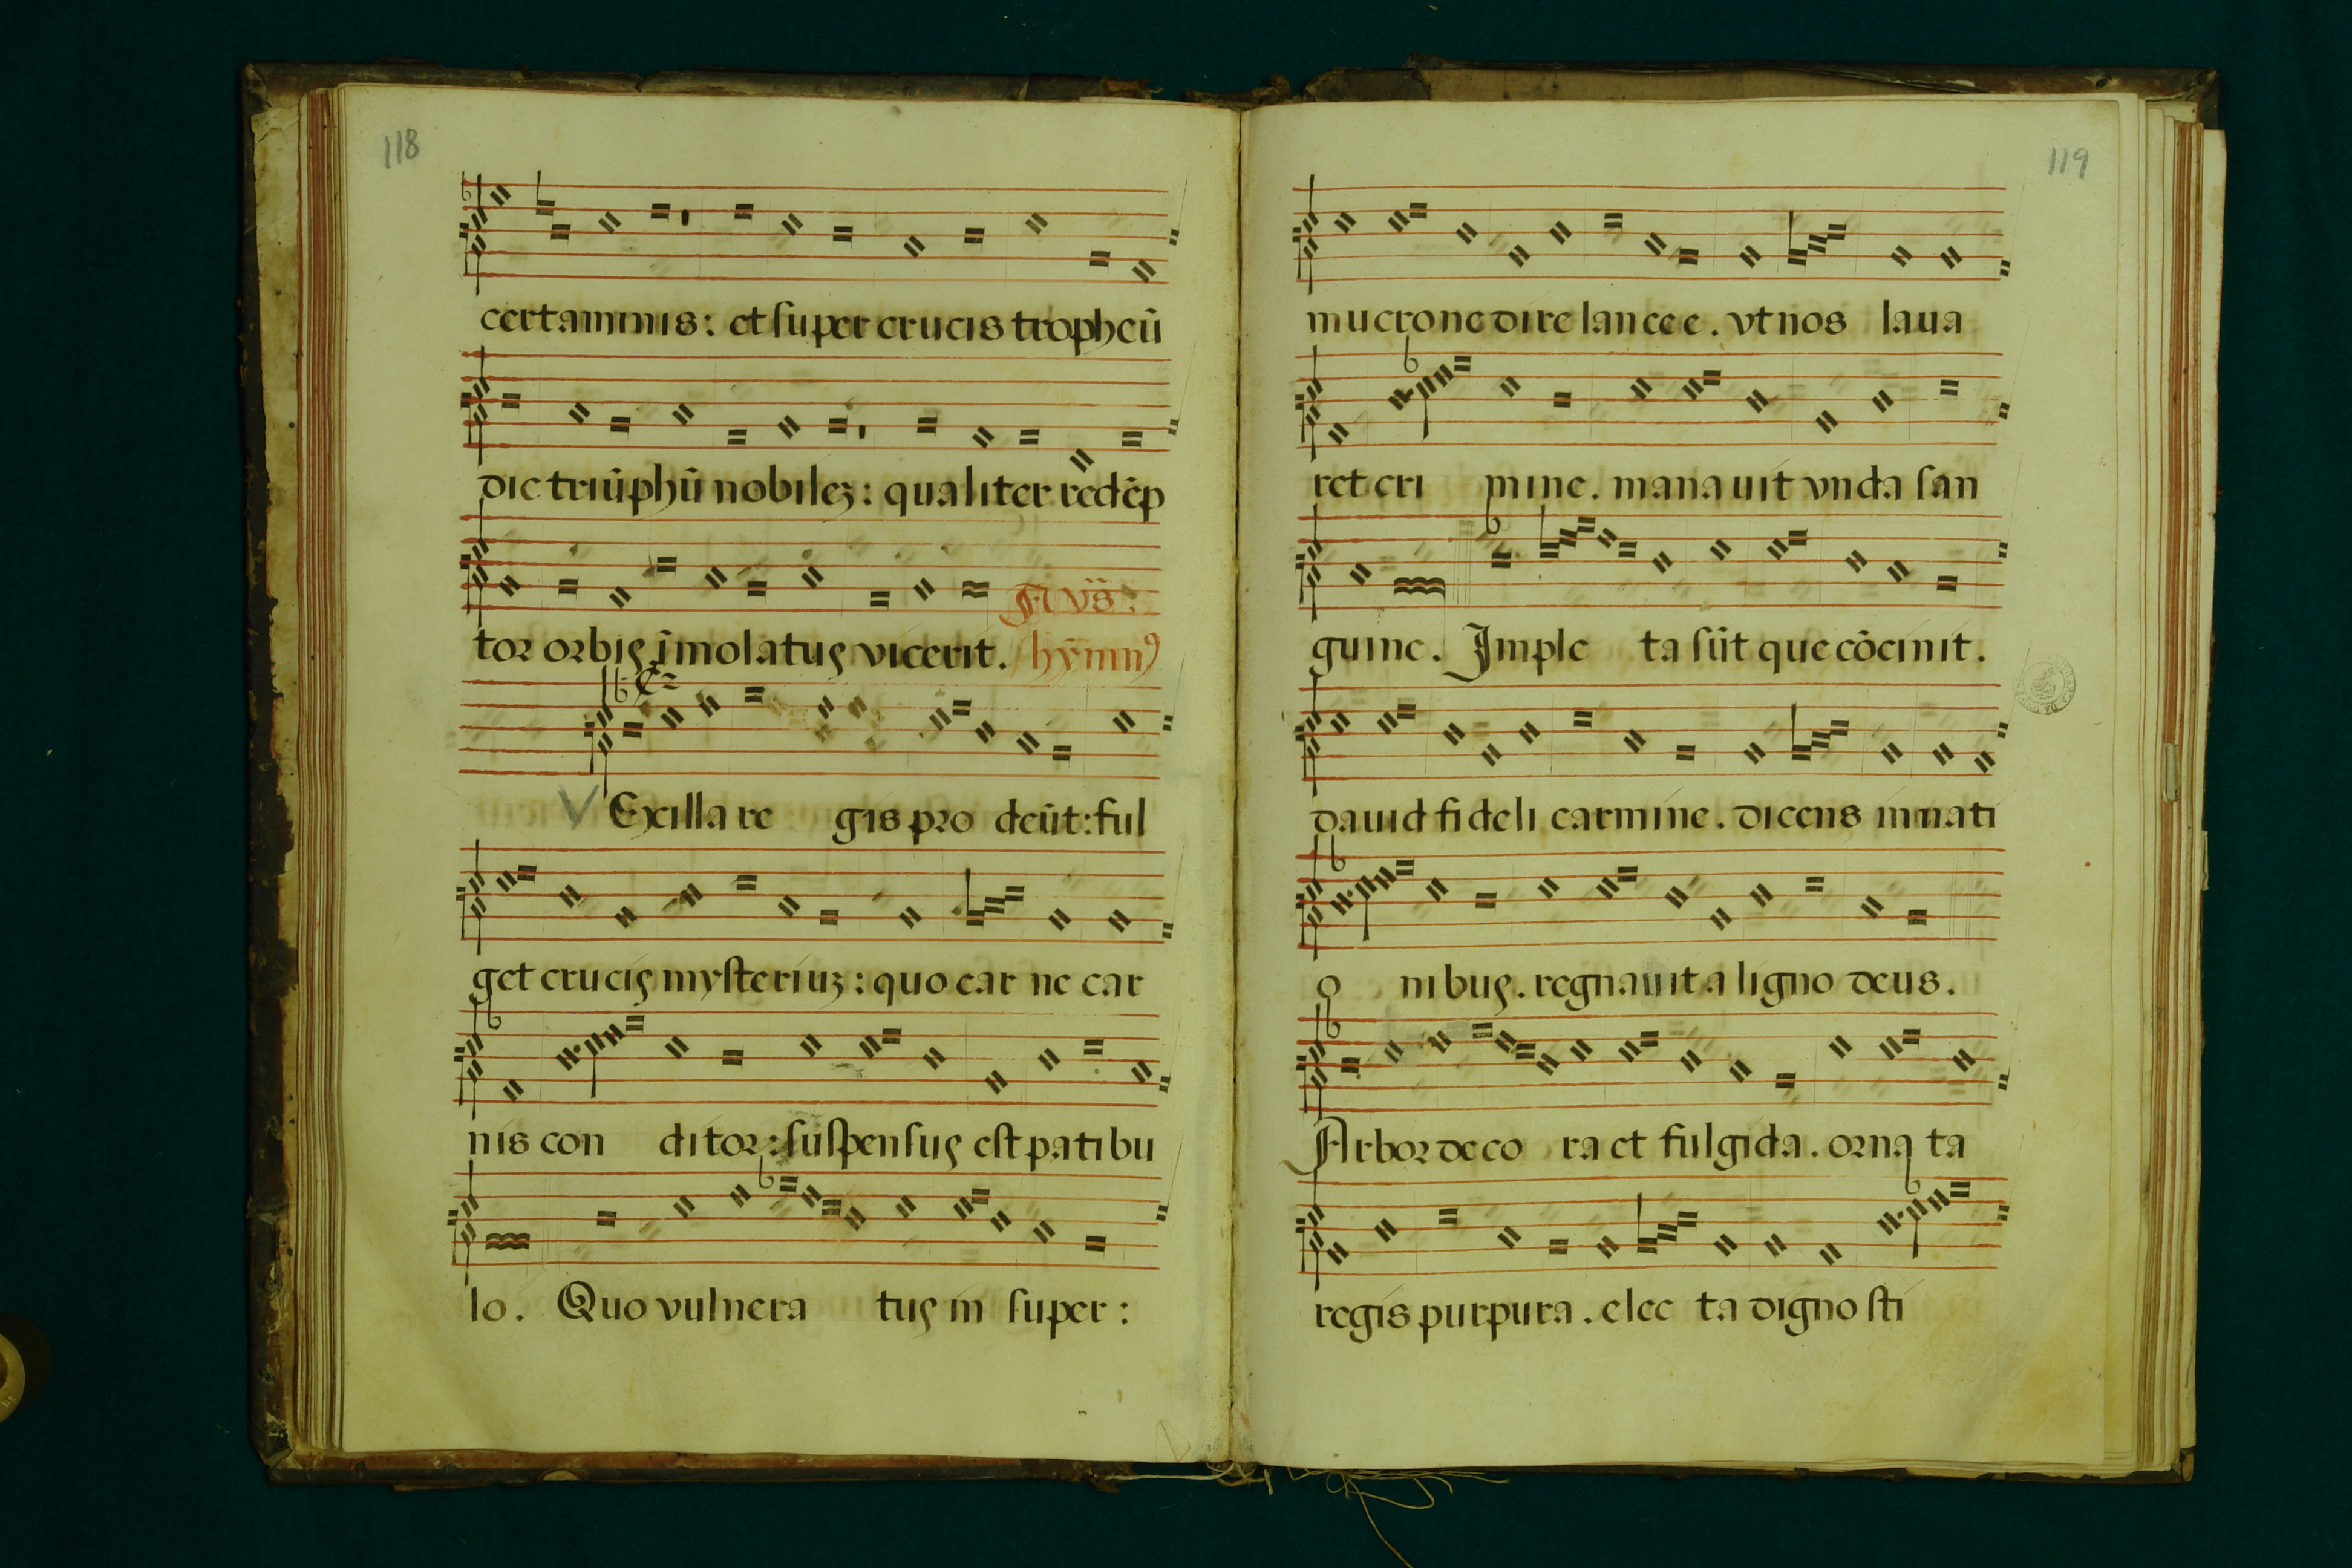 118
certaminis: et ſuper crucis tropheū
dic triūphū nobileʒ: qualiter redēp
tor orbis īmolatus vicerit.
hȳmnꝰ
V Exilla regis prodeūt: ful
get crucis myſteriuʒ: quo carne car
nis conditor: ſuſpenſus eſt patibu
lo. Quo vulneratus in ſuper:
119
mucrone dire lancee. vt nos laua
ret crimine. manauit vnda ſan
guine. Impleta ſūt que cōcinit.
dauid fideli carmine. dicens in nati
onibus. regnauit a ligno deus.
Arbor decora et fulgida. ornata
regis purpura. electa digno ſti